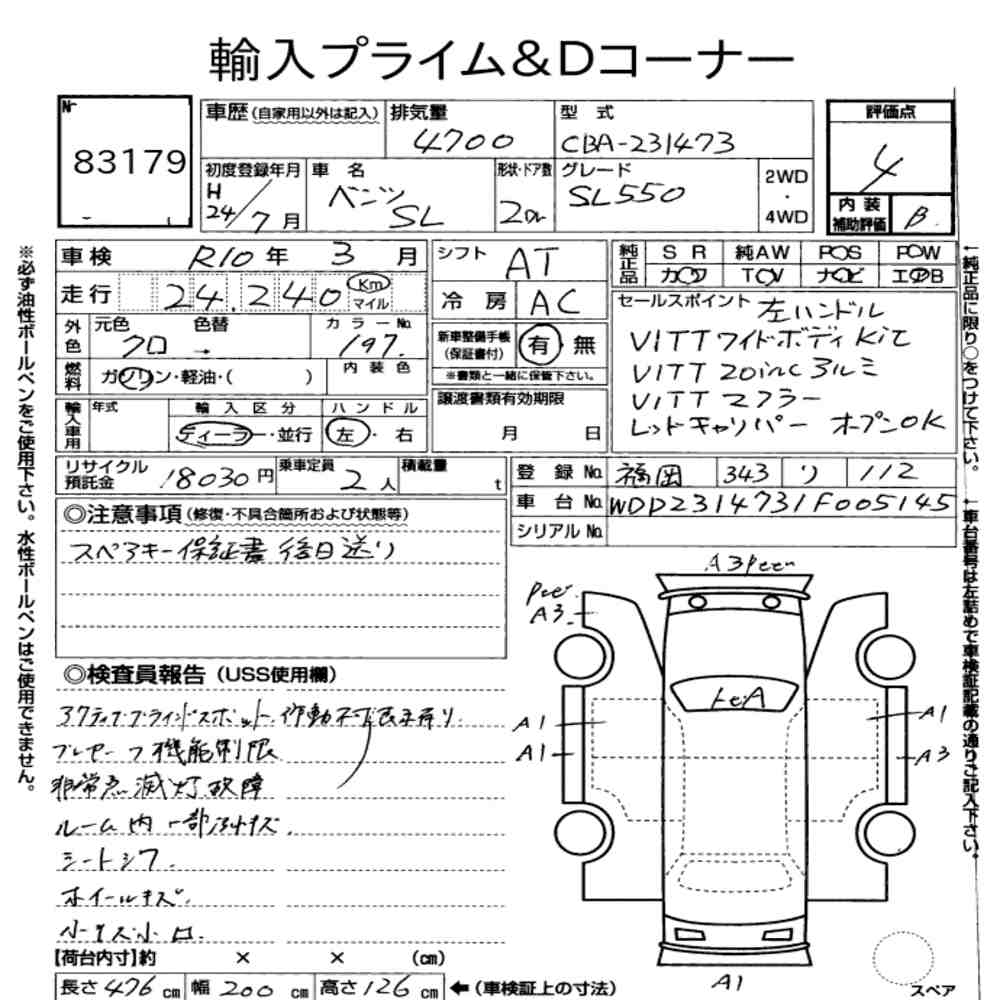 輸入プライム&Dコーナー
№
83179
車歴(自家用以外は記入)
排気量
4700
型式
CBA-231473
評価点
4
初度登録年月
H
24/7月
車名
ベンツ
SL
形状・ドア数
2Dr
グレード
SL550
2WD
・
4WD
内装
補助評価
B
車検 R10年 3月
シフト AT
純正品
SR 純AW POS POW
カワ TV ナビ エアB
走行 24,240 Km マイル
冷房 AC
セールスポイント 左ハンドル
VITT ワイドボディkit
VITT 20inc アルミ
VITT マフラー
レッドキャリパー オープンOK
外色
元色 色替 カラーNo.
クロ → 197.
新車整備手帳
(保証書付)
有 無
※書類と一緒に保管下さい。
燃料
ガソリン・軽油・( )
内装色
輸入車用
年式
輸入区分
ディーラー・並行
ハンドル
左・右
譲渡書類有効期限
月 日
リサイクル
預託金
18030円
乗車定員
2人
積載量
t
登録No. 福岡 343 リ 112
車台No. WDD2314731F005145
シリアルNo.
◎注意事項(修復・不具合箇所および状態等)
スペアキー保証書後日送り
◎検査員報告(USS使用欄)
アクティブブラインドスポット作動不可表示有り
プレセーフ機能制限
非常点滅灯故障
ルーム内一部
シートシワ.
ホイールキズ.
小キズ小凹.
【荷台内寸】約 × × (cm)
長さ476cm 幅200cm 高さ126cm ←(車検証上の寸法)
A3Pee
Pee
A3
A1
A1
A1
A3
A1
スペア
※必ず油性ボールペンをご使用下さい。水性ボールペンはご使用できません。
←純正品に限り○をつけて下さい。
←車台番号は左詰めで車検証記載の通りご記入下さい。